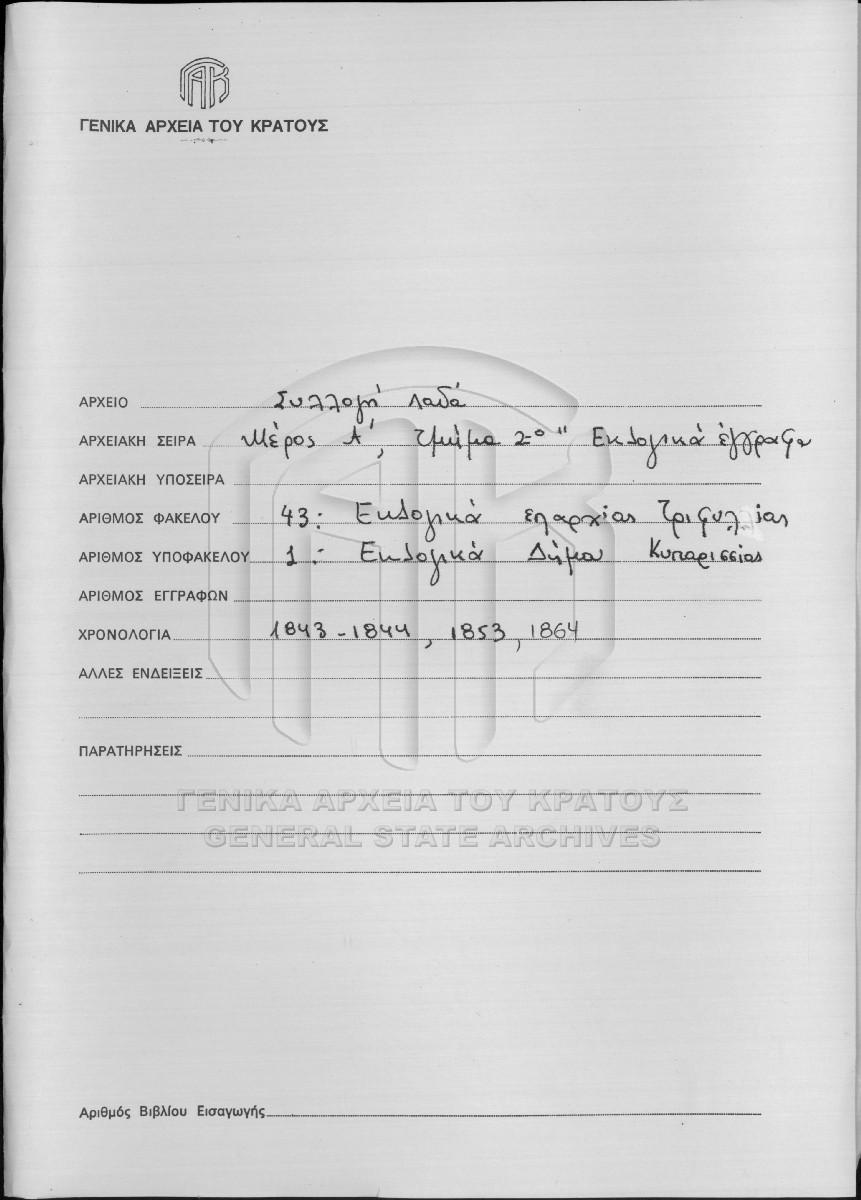 ΓΕΝΙΚΑ ΑΡΧΕΙΑ ΤΟΥ ΚΡΑΤΟΥΣ
ΑΡΧΕΙΟ Συλλογή Λαδά
ΑΡΧΕΙΑΚΗ ΣΕΙΡΑ Μέρος Α', Τμήμα 2ο " Εκλογικά έγγραφα
ΑΡΧΕΙΑΚΗ ΥΠΟΣΕΙΡΑ
ΑΡΙΘΜΟΣ ΦΑΚΕΛΟΥ 43: Εκλογικά επαρχίας Τριφυλίας
ΑΡΙΘΜΟΣ ΥΠΟΦΑΚΕΛΟΥ 1: Εκλογικά Δήμου Κυπαρισσίας
ΑΡΙΘΜΟΣ ΕΓΓΡΑΦΩΝ
ΧΡΟΝΟΛΟΓΙΑ 1843-1844, 1853, 1864
ΑΛΛΕΣ ΕΝΔΕΙΞΕΙΣ
ΠΑΡΑΤΗΡΗΣΕΙΣ
ΓΕΝΙΚΑ ΑΡΧΕΙΑ ΤΟΥ ΚΡΑΤΟΥΣ
GENERAL STATE ARCHIVES
Αριθμός Βιβλίου Εισαγωγής